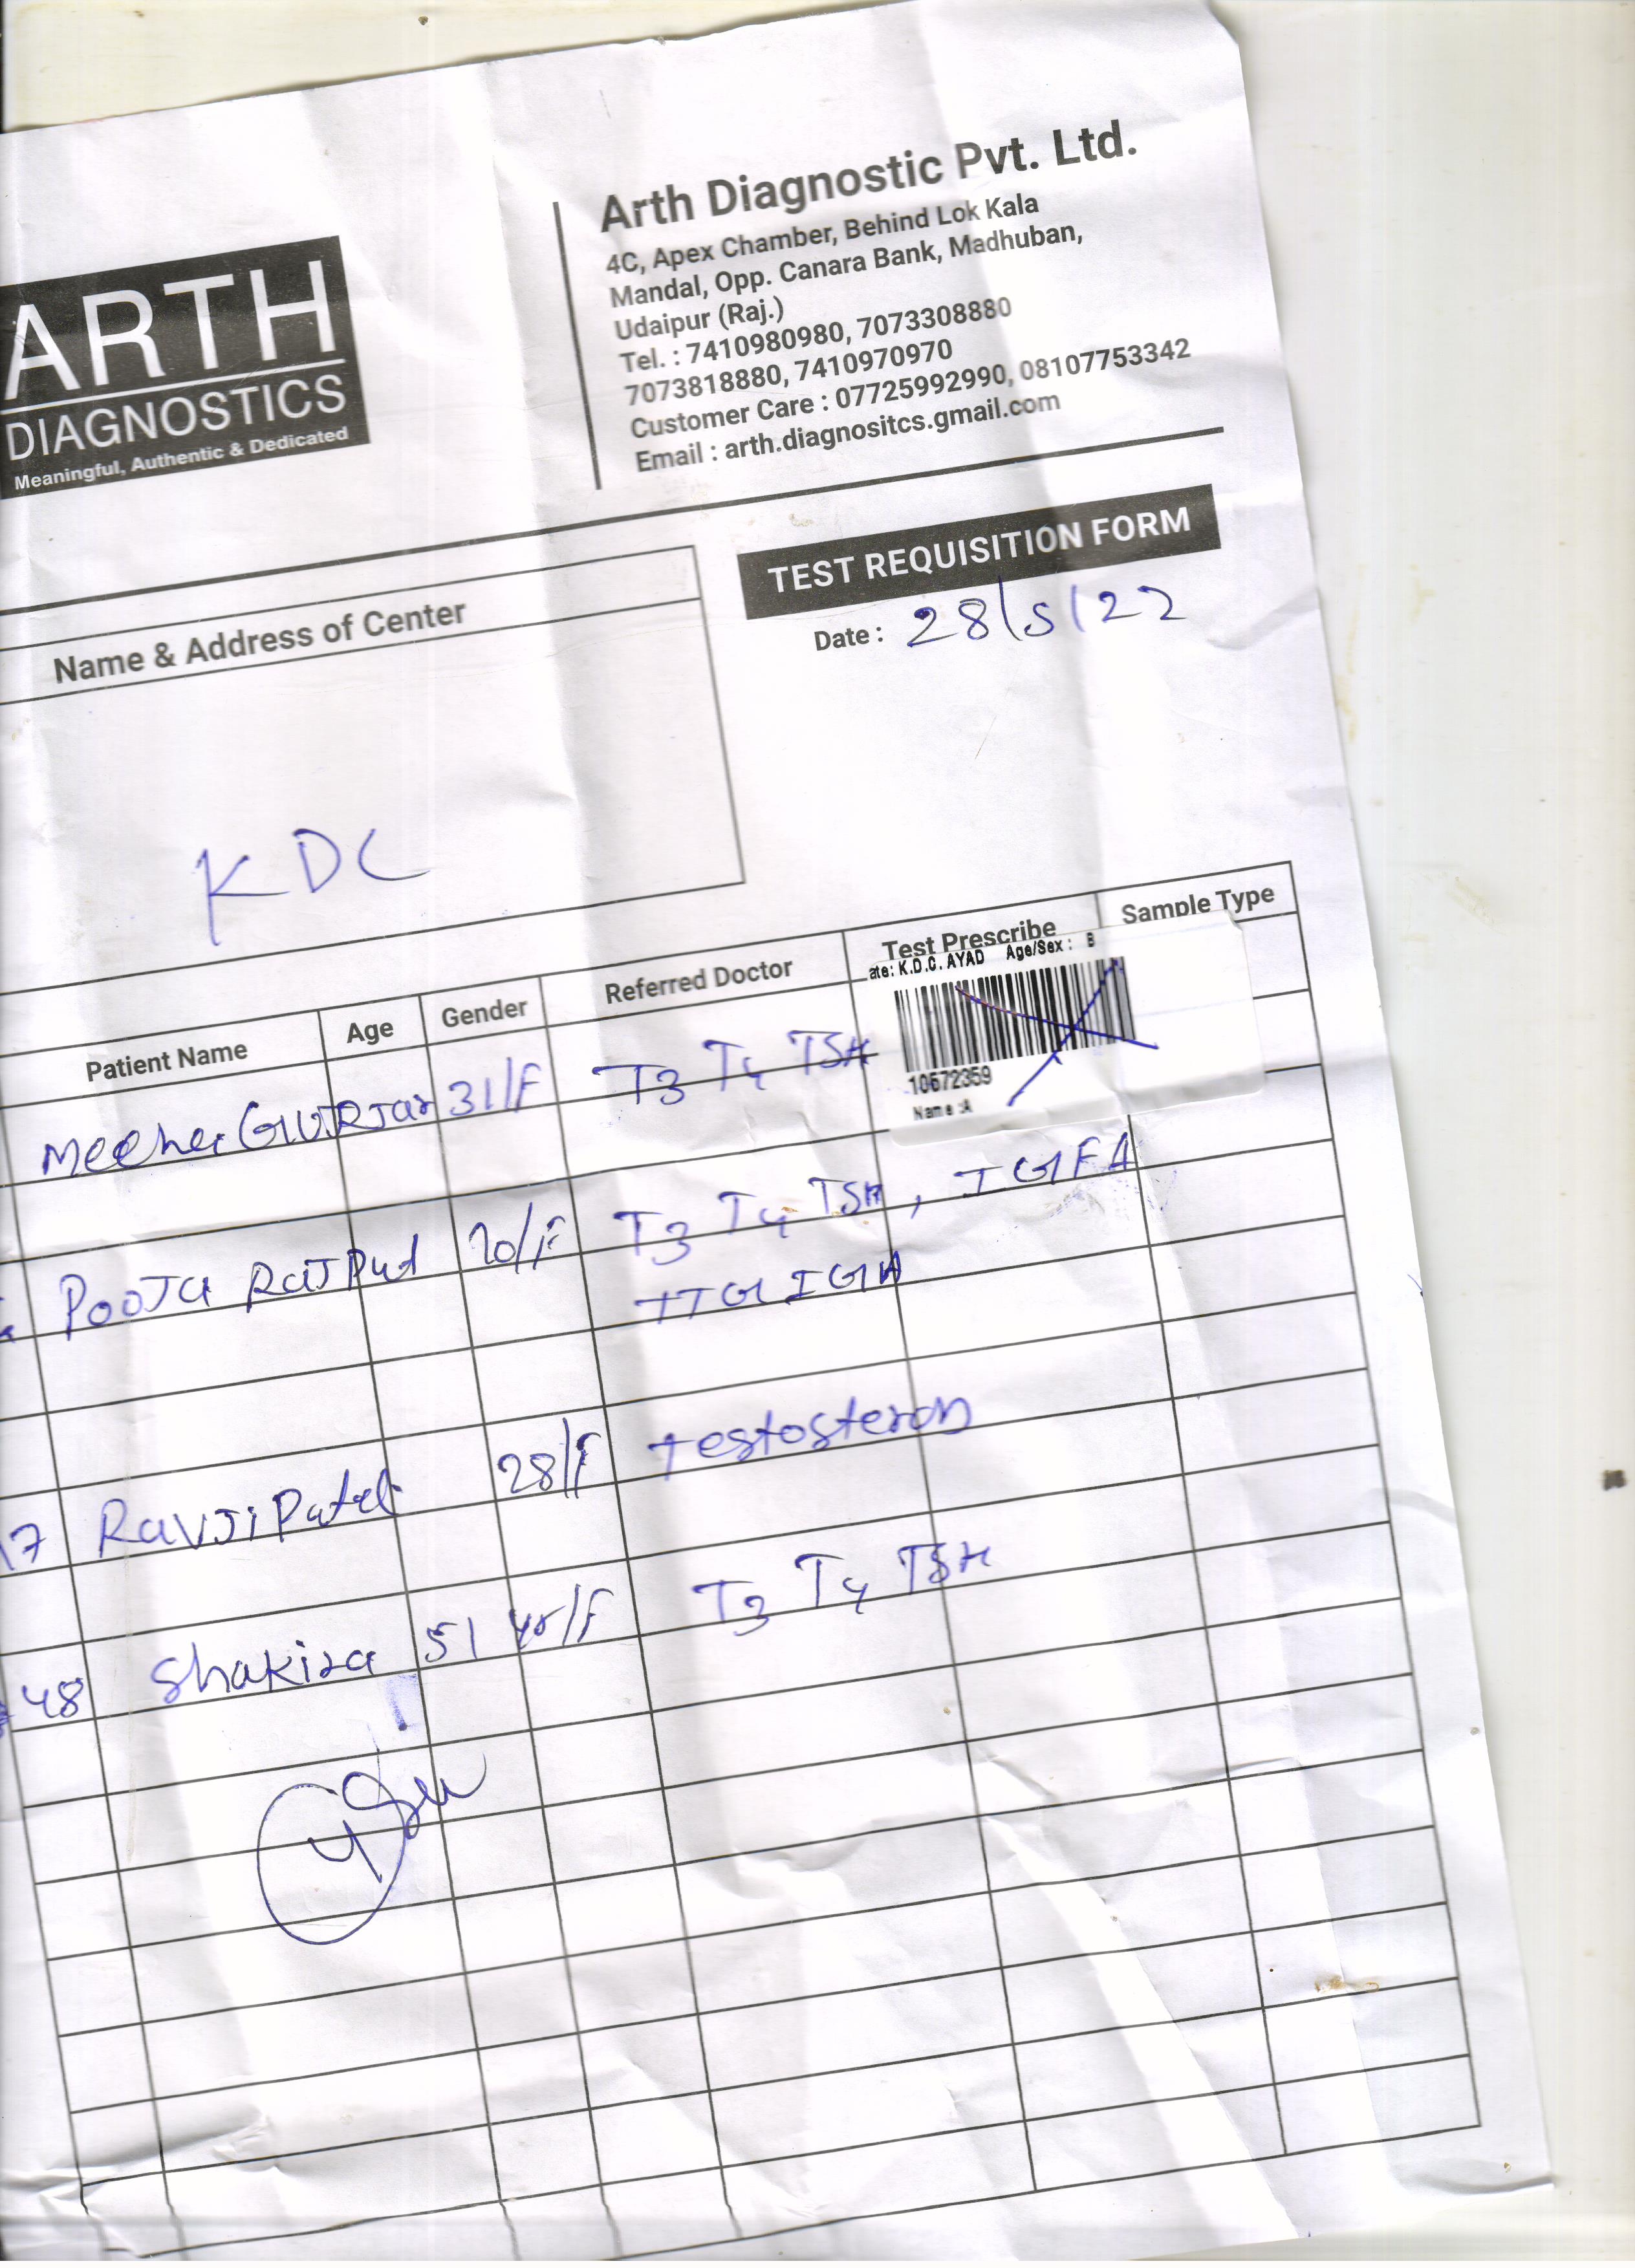 ARTH
DIAGNOSTICS
Meaningful, Authentic & Dedicated
Arth Diagnostic Pvt. Ltd.
4C, Apex Chamber, Behind Lok Kala
Mandal, Opp. Canara Bank, Madhuban,
Udaipur (Raj.)
Tel. : 7410980980, 7073308880
7073818880, 7410970970
Customer Care : 07725992990, 08107753342
Email : arth.diagnositcs.gmail.com
TEST REQUISITION FORM
Date : 28/5/22
Name & Address of Center
KDC
Patient Name Age Gender Referred Doctor Test Prescribe Sample Type
ate: K.D.C. AYAD Age/Sex : B
10672359
Name :A
GURJar 31/F T3 T4 TSH
POOJa RaJPut 20/F T3 T4 TSH, IGFA
TTG IGA
17 RavJi Patel 28/F testosteron
48 Shakira 51 yr/F T3 T4 TSH